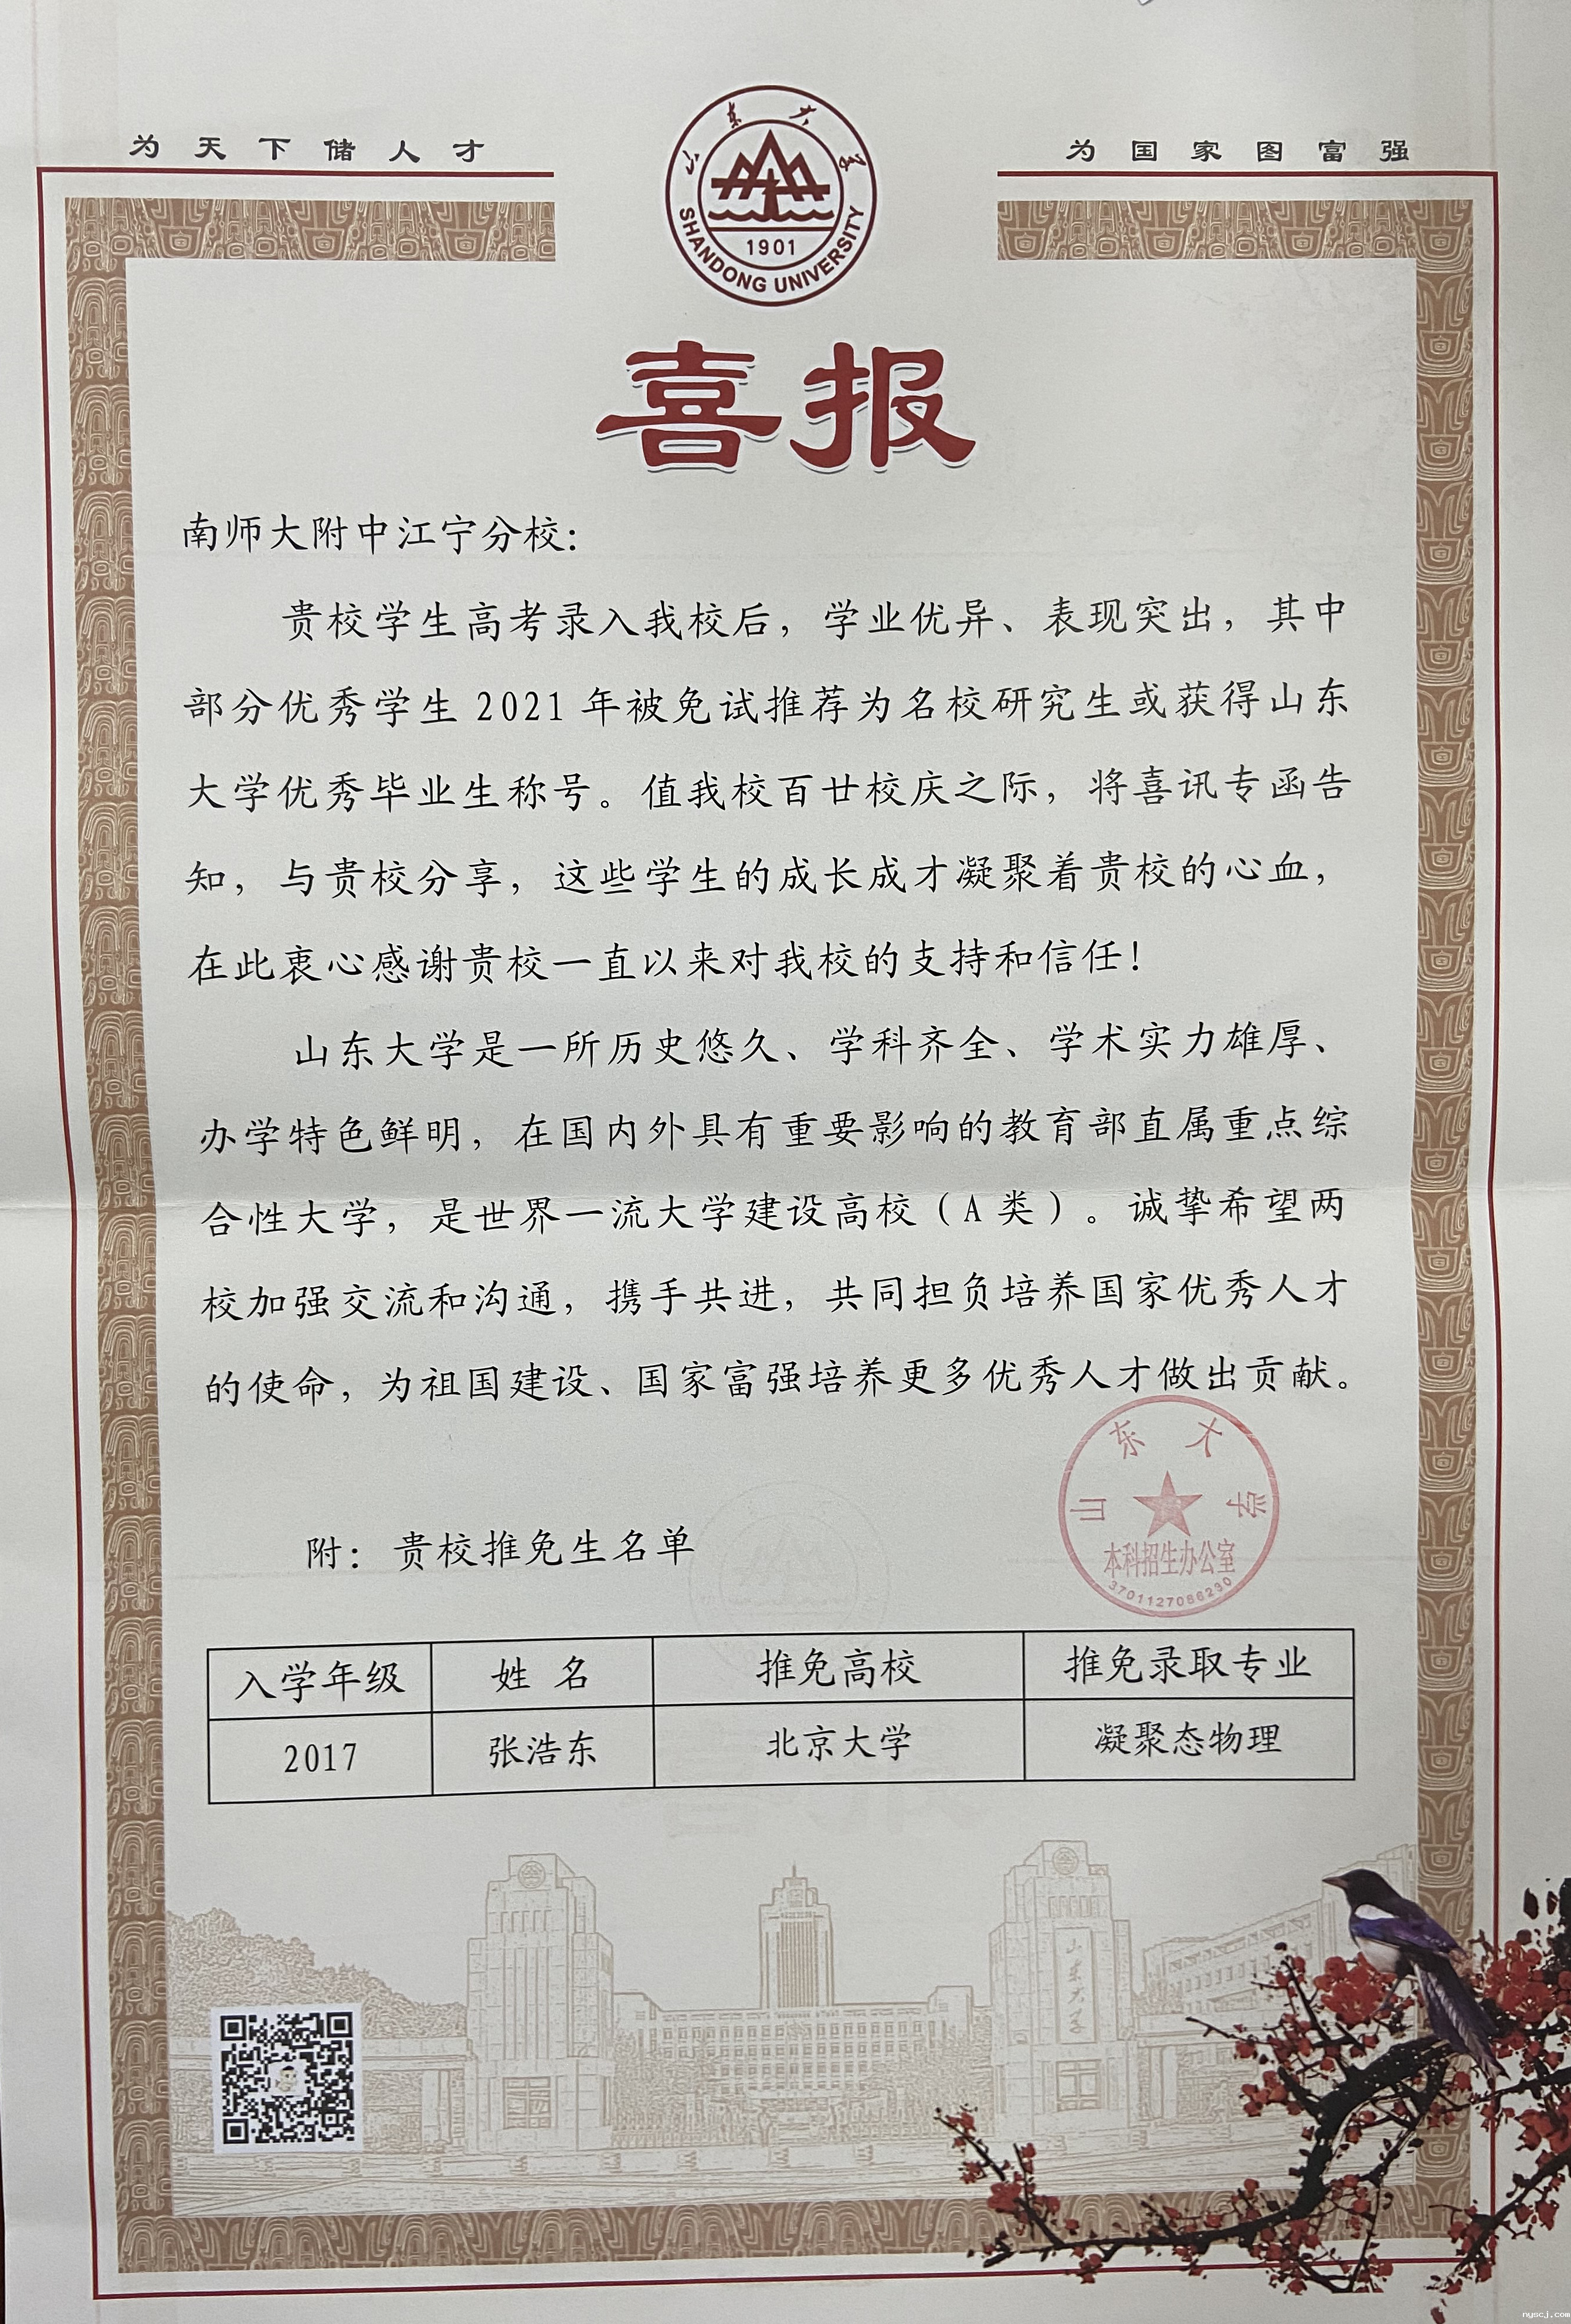 为天下储人才
为国家图富强
山东大学
SHANDONG UNIVERSITY
1901
喜报
南师大附中江宁分校：
贵校学生高考录入我校后，学业优异、表现突出，其中
部分优秀学生 2021 年被免试推荐为名校研究生或获得山东
大学优秀毕业生称号。值我校百廿校庆之际，将喜讯专函告
知，与贵校分享，这些学生的成长成才凝聚着贵校的心血，
在此衷心感谢贵校一直以来对我校的支持和信任！
山东大学是一所历史悠久、学科齐全、学术实力雄厚、
办学特色鲜明，在国内外具有重要影响的教育部直属重点综
合性大学，是世界一流大学建设高校（A 类）。诚挚希望两
校加强交流和沟通，携手共进，共同担负培养国家优秀人才
的使命，为祖国建设、国家富强培养更多优秀人才做出贡献。
山东大学
本科招生办公室
3701127086290
附：贵校推免生名单
入学年级 姓 名 推免高校 推免录取专业
2017 张浩东 北京大学 凝聚态物理
山东大学
nyscj.com